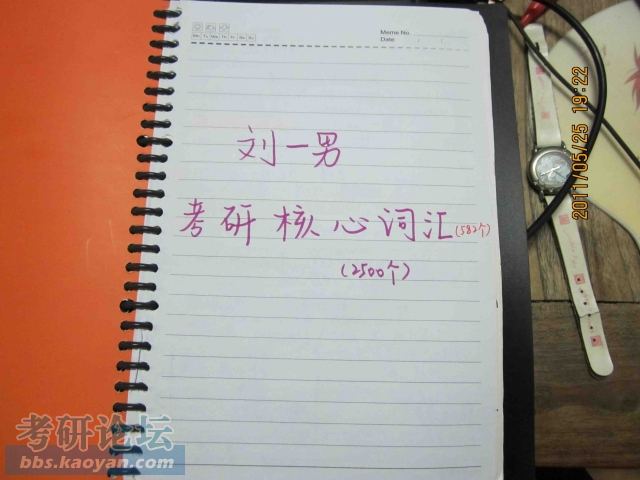 Memo No.
Date
Mo Tu We Th Fr Sa Su
刘一男
考研核心词汇(582个)
(2500个)
2011/05/25 19:22
考研论坛
bbs.kaoyan.com